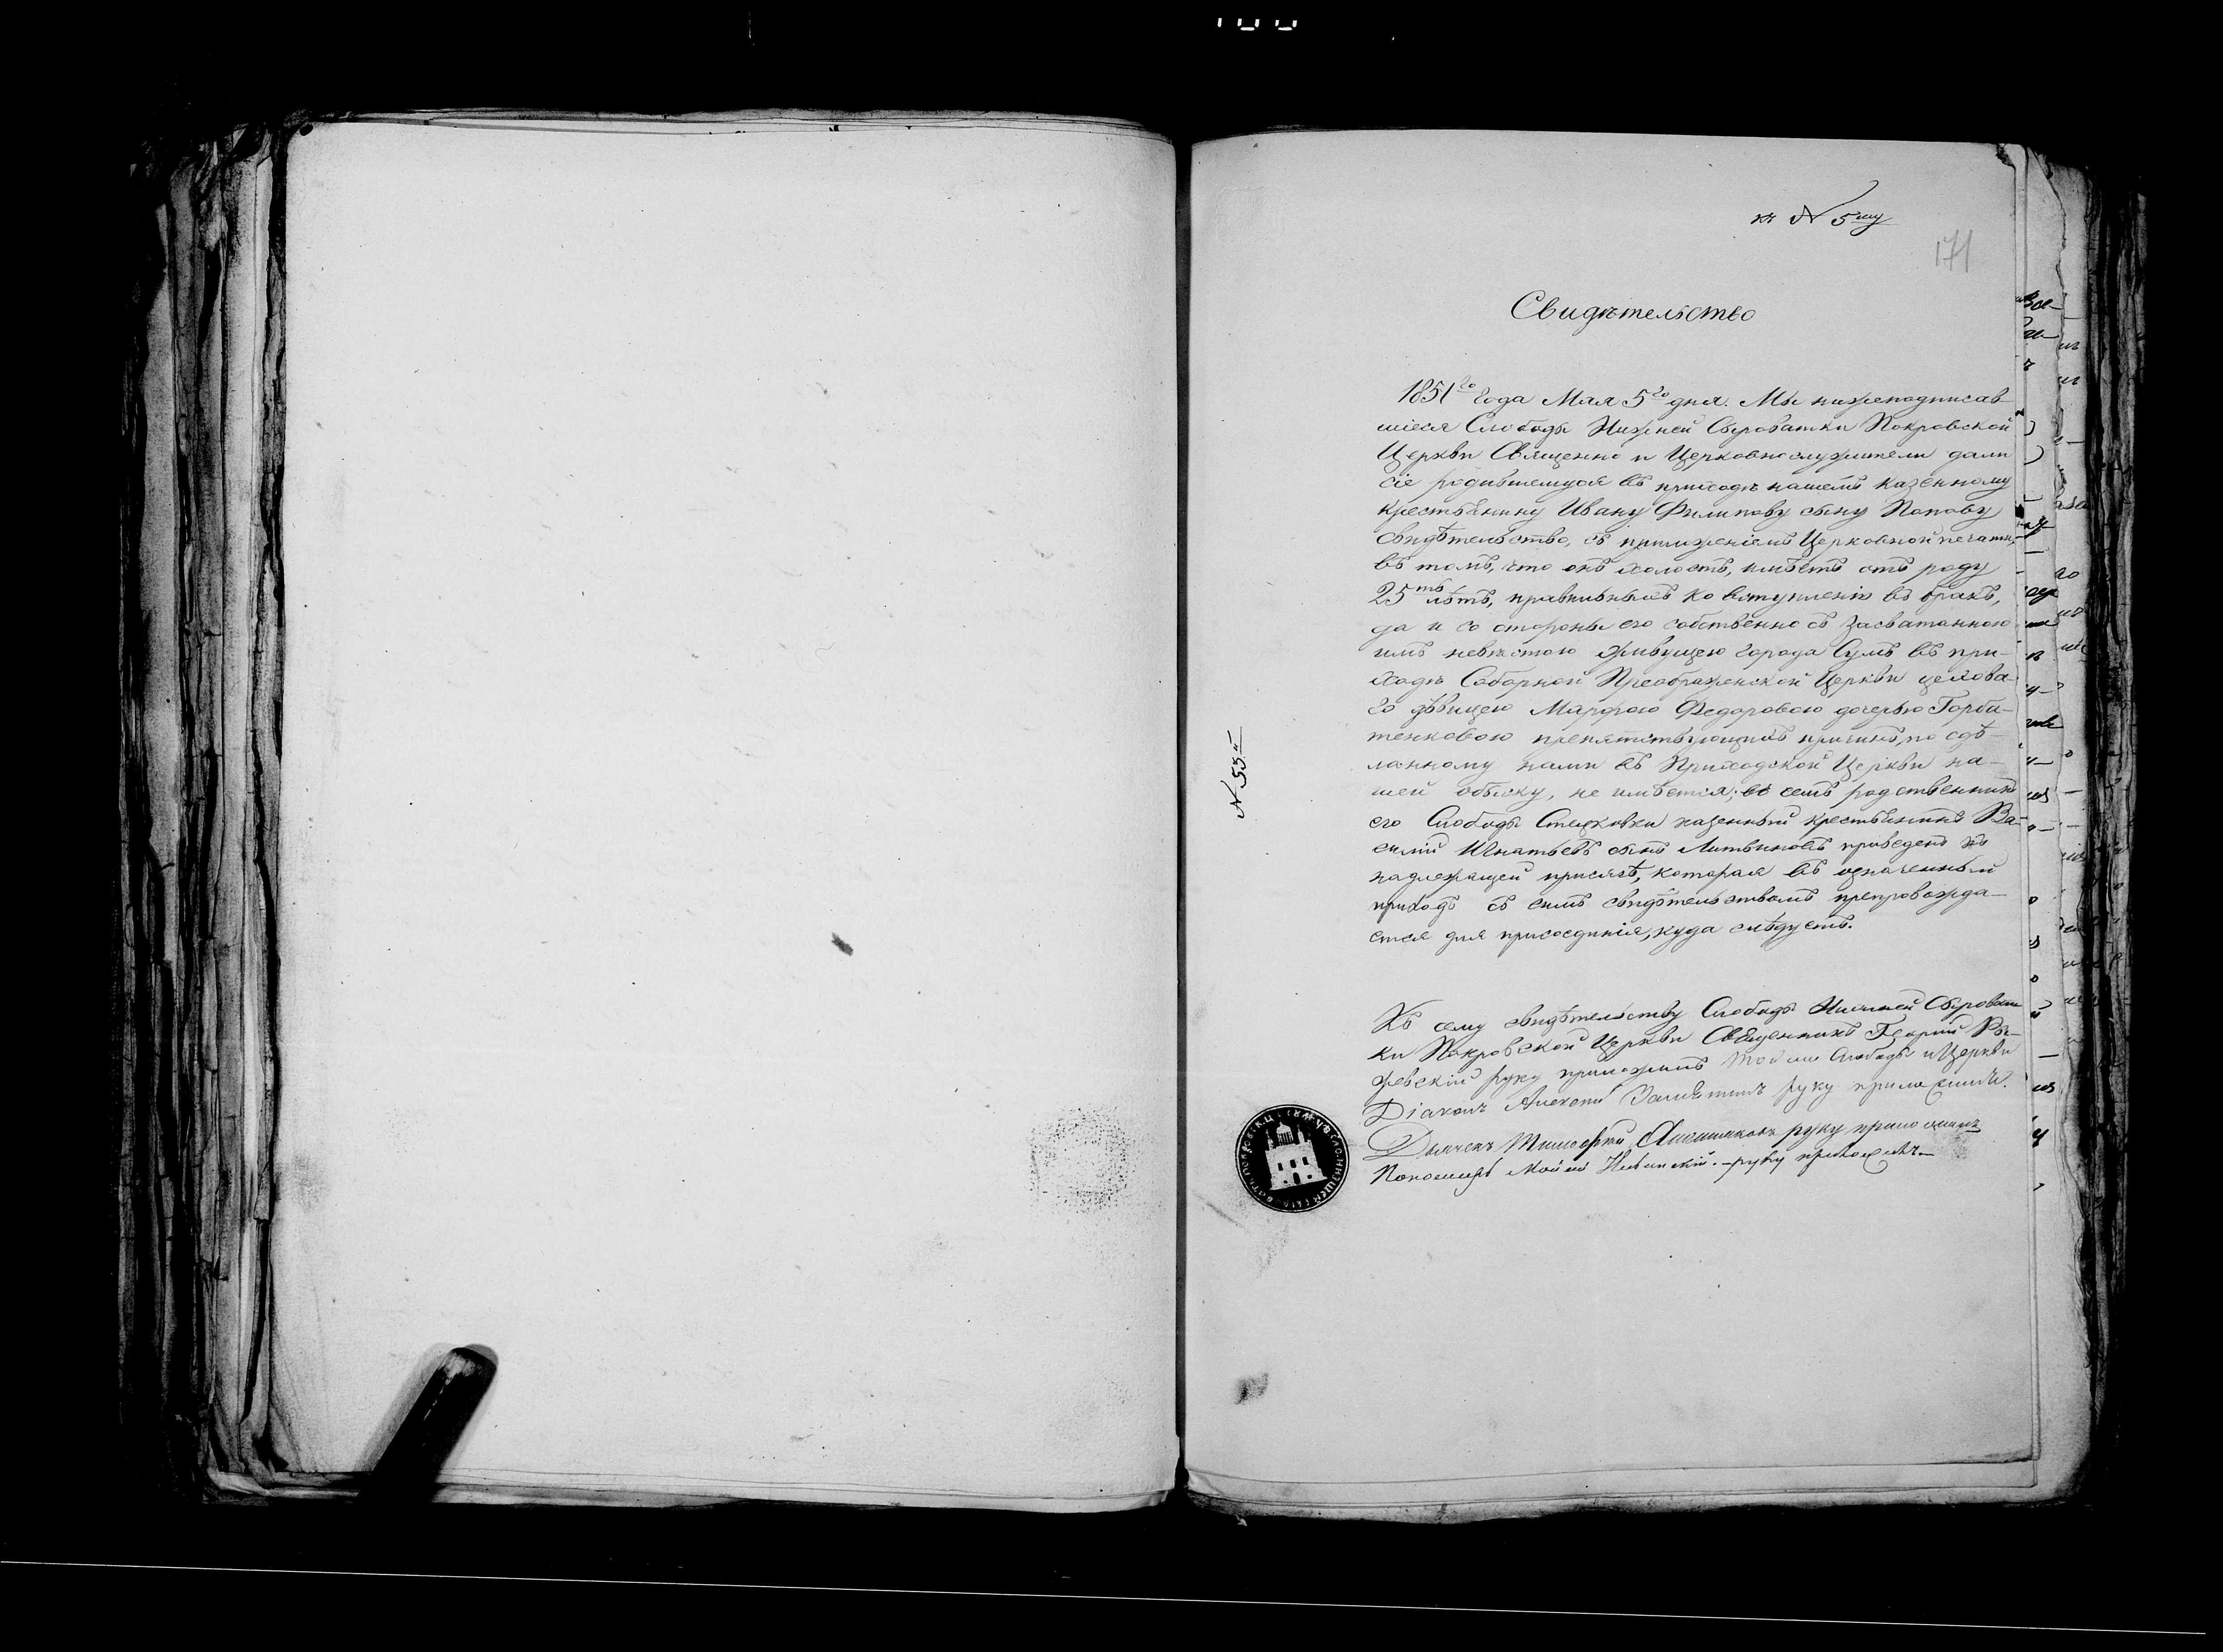 къ № 5му
171
Свидѣтельство
1851го года Мая 5го дня. Мы нижеподписав
шіеся Слободы Нижней Сыроватки Покровской
Церкви Священно и Церковнослужители дали
сіе родившемуся въ приходѣ нашемъ казенному
крестьянину Ивану Филипову сыну Попову
свидѣтельство, съ приложеніемъ Церковной печати,
въ томъ, что онъ холостъ, имѣетъ отъ роду
25ть лѣтъ, правильныхъ ко вступленію въ бракъ,
да и со стороны его собственно съ засватанною
имъ невѣстою живущею города Сумъ въ при-
ходѣ Соборной Преображенской Церкви
го дѣвицею Марфою Федоровою дочерью Горба-
тенковою препятствующихъ причинъ, по сдѣ-
ланному нами въ Приходской Церкви на-
шей обыску, не имѣется; въ семъ родственникъ
его Слободы Стецковки казенный крестьянинъ Ва-
силій Игнатьевъ сынъ Литвиновъ приведенъ къ
надлежащей присягѣ, которая въ означенный
приходъ съ симъ свидѣтельствомъ препровожда-
ется для присоединія, куда слѣдуетъ.
Къ сему свидѣтельству Слободы Нижней Сыроват
ки Покровской Церкви Священникъ Георгій Ры-
жевскій руку приложилъ Той же Слободы и Церкви
Діаконъ Алексѣй руку приложилъ.
Дьячекъ Тимофей руку приложилъ
Пономарь Мойсей руку приложилъ
№ 55й